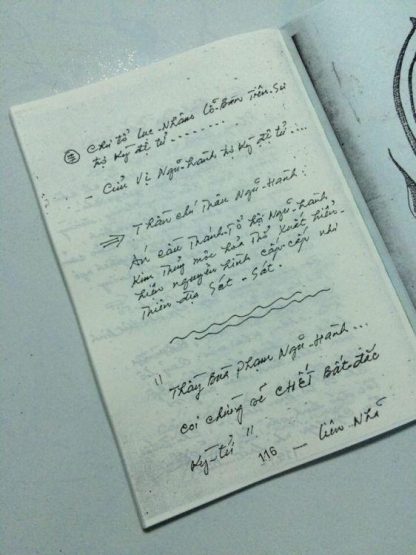 ③ Chư tổ Lục-Nhâm Lỗ-Ban Tiên-Sư
hộ Kỳ đệ tử --------
- Cửu Vị Ngũ-hành hộ Kỳ đệ tử ....
⇒ Thần chú Thâu Ngũ-Hành:
Án cầu Thánh-Tổ hộ Ngũ-hành
Kim Thủy mộc hỏa Thổ Xuất hiện
hiện nguyên hình cấp-cấp như
Thiên địa Sát-Sát.
" Thầy Bùa Phạm Ngũ-Hành...
coi chừng sẽ CHẾT Bất-đắc
Kỳ-tử "
116 - liên Nhả